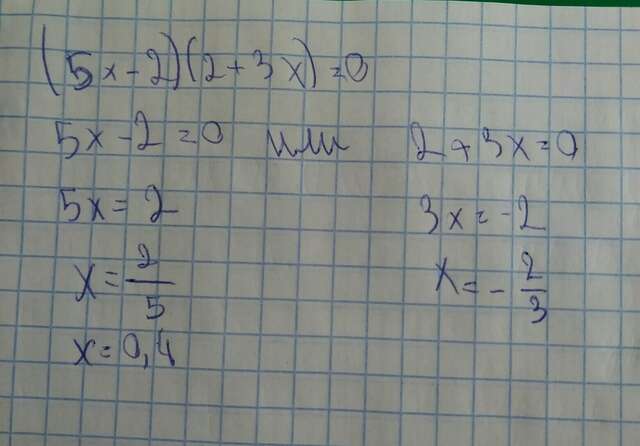 (5x-2)(2+3x)=0
5x-2=0 или 2+3x=0
5x=2 3x=-2
x=2/5 x=-2/3
x=0,4